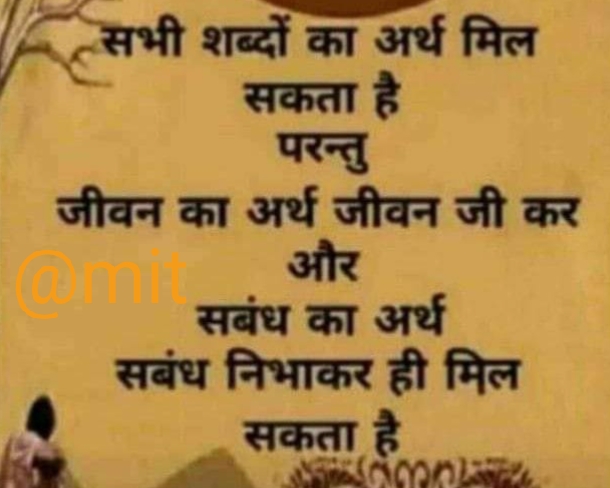 सभी शब्दों का अर्थ मिल
सकता है
परन्तु
जीवन का अर्थ जीवन जी कर
और
@mit
सबंध का अर्थ
सबंध निभाकर ही मिल
सकता है